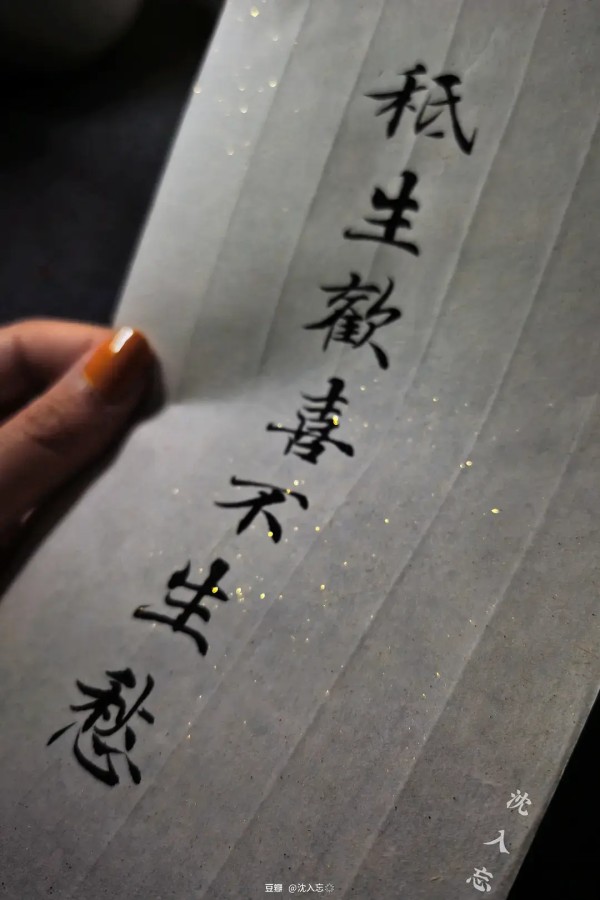 秪生歡喜不生愁
沈入忘
豆瓣 @沈入忘